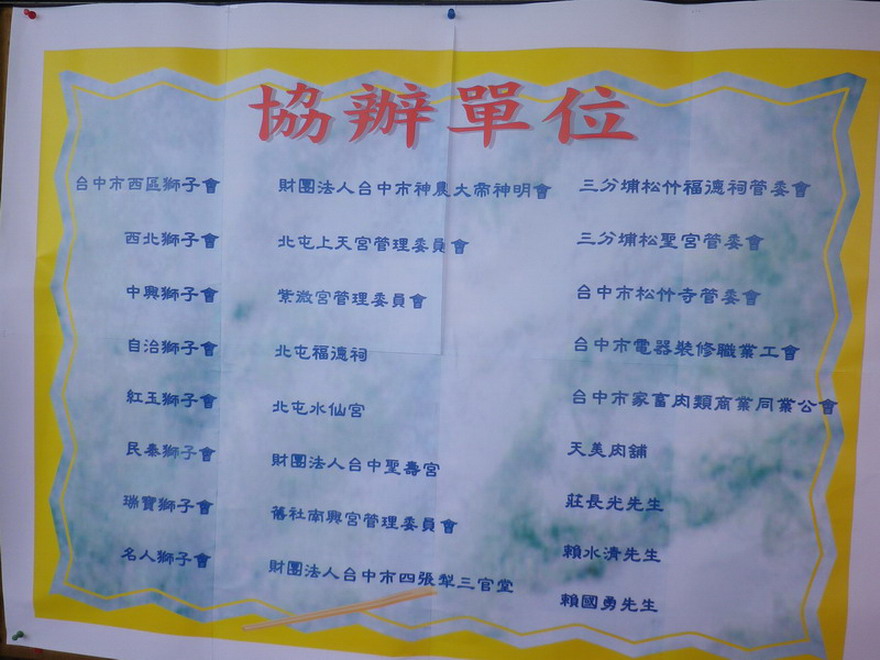 協辦單位
台中市西區獅子會
西北獅子會
中興獅子會
自治獅子會
紅玉獅子會
民泰獅子會
瑞寶獅子會
名人獅子會
財團法人台中市神農大帝神明會
北屯上天宮管理委員會
紫微宮管理委員會
北屯福德祠
北屯水仙宮
財團法人台中聖壽宮
舊社南興宮管理委員會
財團法人台中市四張犁三官堂
三分埔松竹福德祠管委會
三分埔松聖宮管委會
台中市松竹寺管委會
台中市電器裝修職業工會
台中市家畜肉類商業同業公會
天美肉舖
莊長光先生
賴水清先生
賴國勇先生